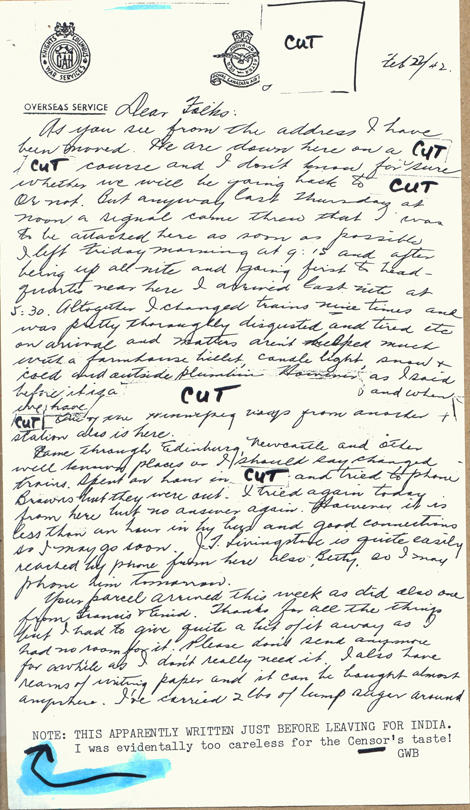 KNIGHTS OF COLUMBUS
WAR SERVICES
ROYAL CANADIAN AIR FORCE
CUT
Feb 22/42.
OVERSEAS SERVICE Dear Folks:
As you see from the address I have
been moved. We are down here on a CUT
CUT course and I don't know for sure
whether we will be going back to CUT
or not. But anyway last Thursday at
noon a signal came threw that I was
to be attached here as soon as possible
I left Friday morning at 9:15 and after
being up all nite and going first to head-
quarters near here I arrived last nite at
5:30. Altogether I changed trains nine times and
was pretty thoroughly disgusted and tired etc
on arrival and matters aren't helped much
with a farmhouse billet candle light snow +
cold and outside plumbin However as I said
before it is a CUT and when
we have
CUT One of the Winnipeg boys from another
station also is here.
Came through Edinburg, Newcastle and other
well known places or I should say changed
trains. Spent an hour in CUT and tried to phone
but they were out. I tried again today
from here but no answer again. However it is
less than an hour in by bus and good connections
so I may go soon. J.T. Livingstone is quite easily
reached by phone from here also Betty, so I may
phone him tomorrow.
Your parcel arrived this week as did also one
from Francis & Enid. Thanks for all the things
but I had to give quite a bit of it away as I
had no room for it. Please don't send anymore
for awhile as I don't really need it. I also have
reams of writing paper and it can be bought almost
anywhere. I've carried 2 lbs of lump suger around
NOTE: THIS APPARENTLY WRITTEN JUST BEFORE LEAVING FOR INDIA.
I was evidentally too careless for the Censor's taste!
GWB